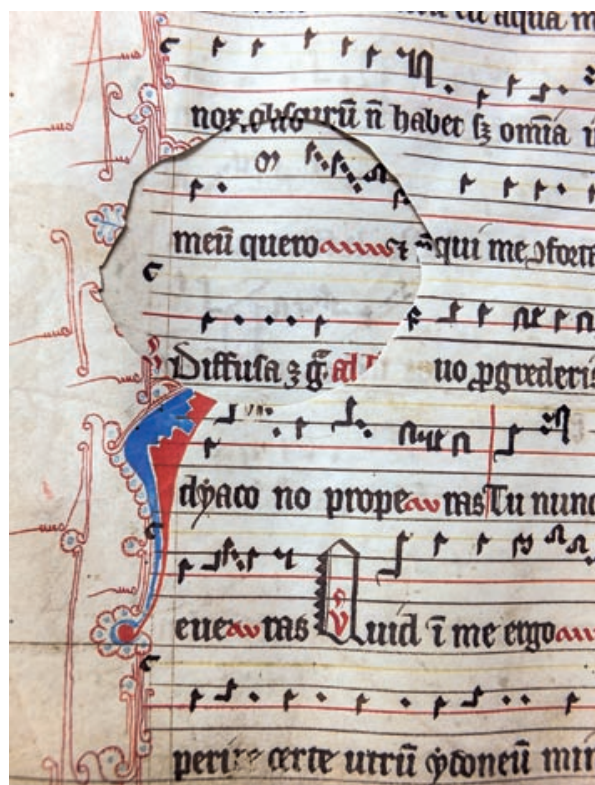 tu aqua m
nox obscurū n̄ habet sʒ omīa i
meū quero qui me ꝯforte
Diffusa ʒ gͣ al uo ꝓgrederis
dyaco no prope ras Tu nunc
eue ras Quid ī me ergo
perire certe utrū ydoneū min